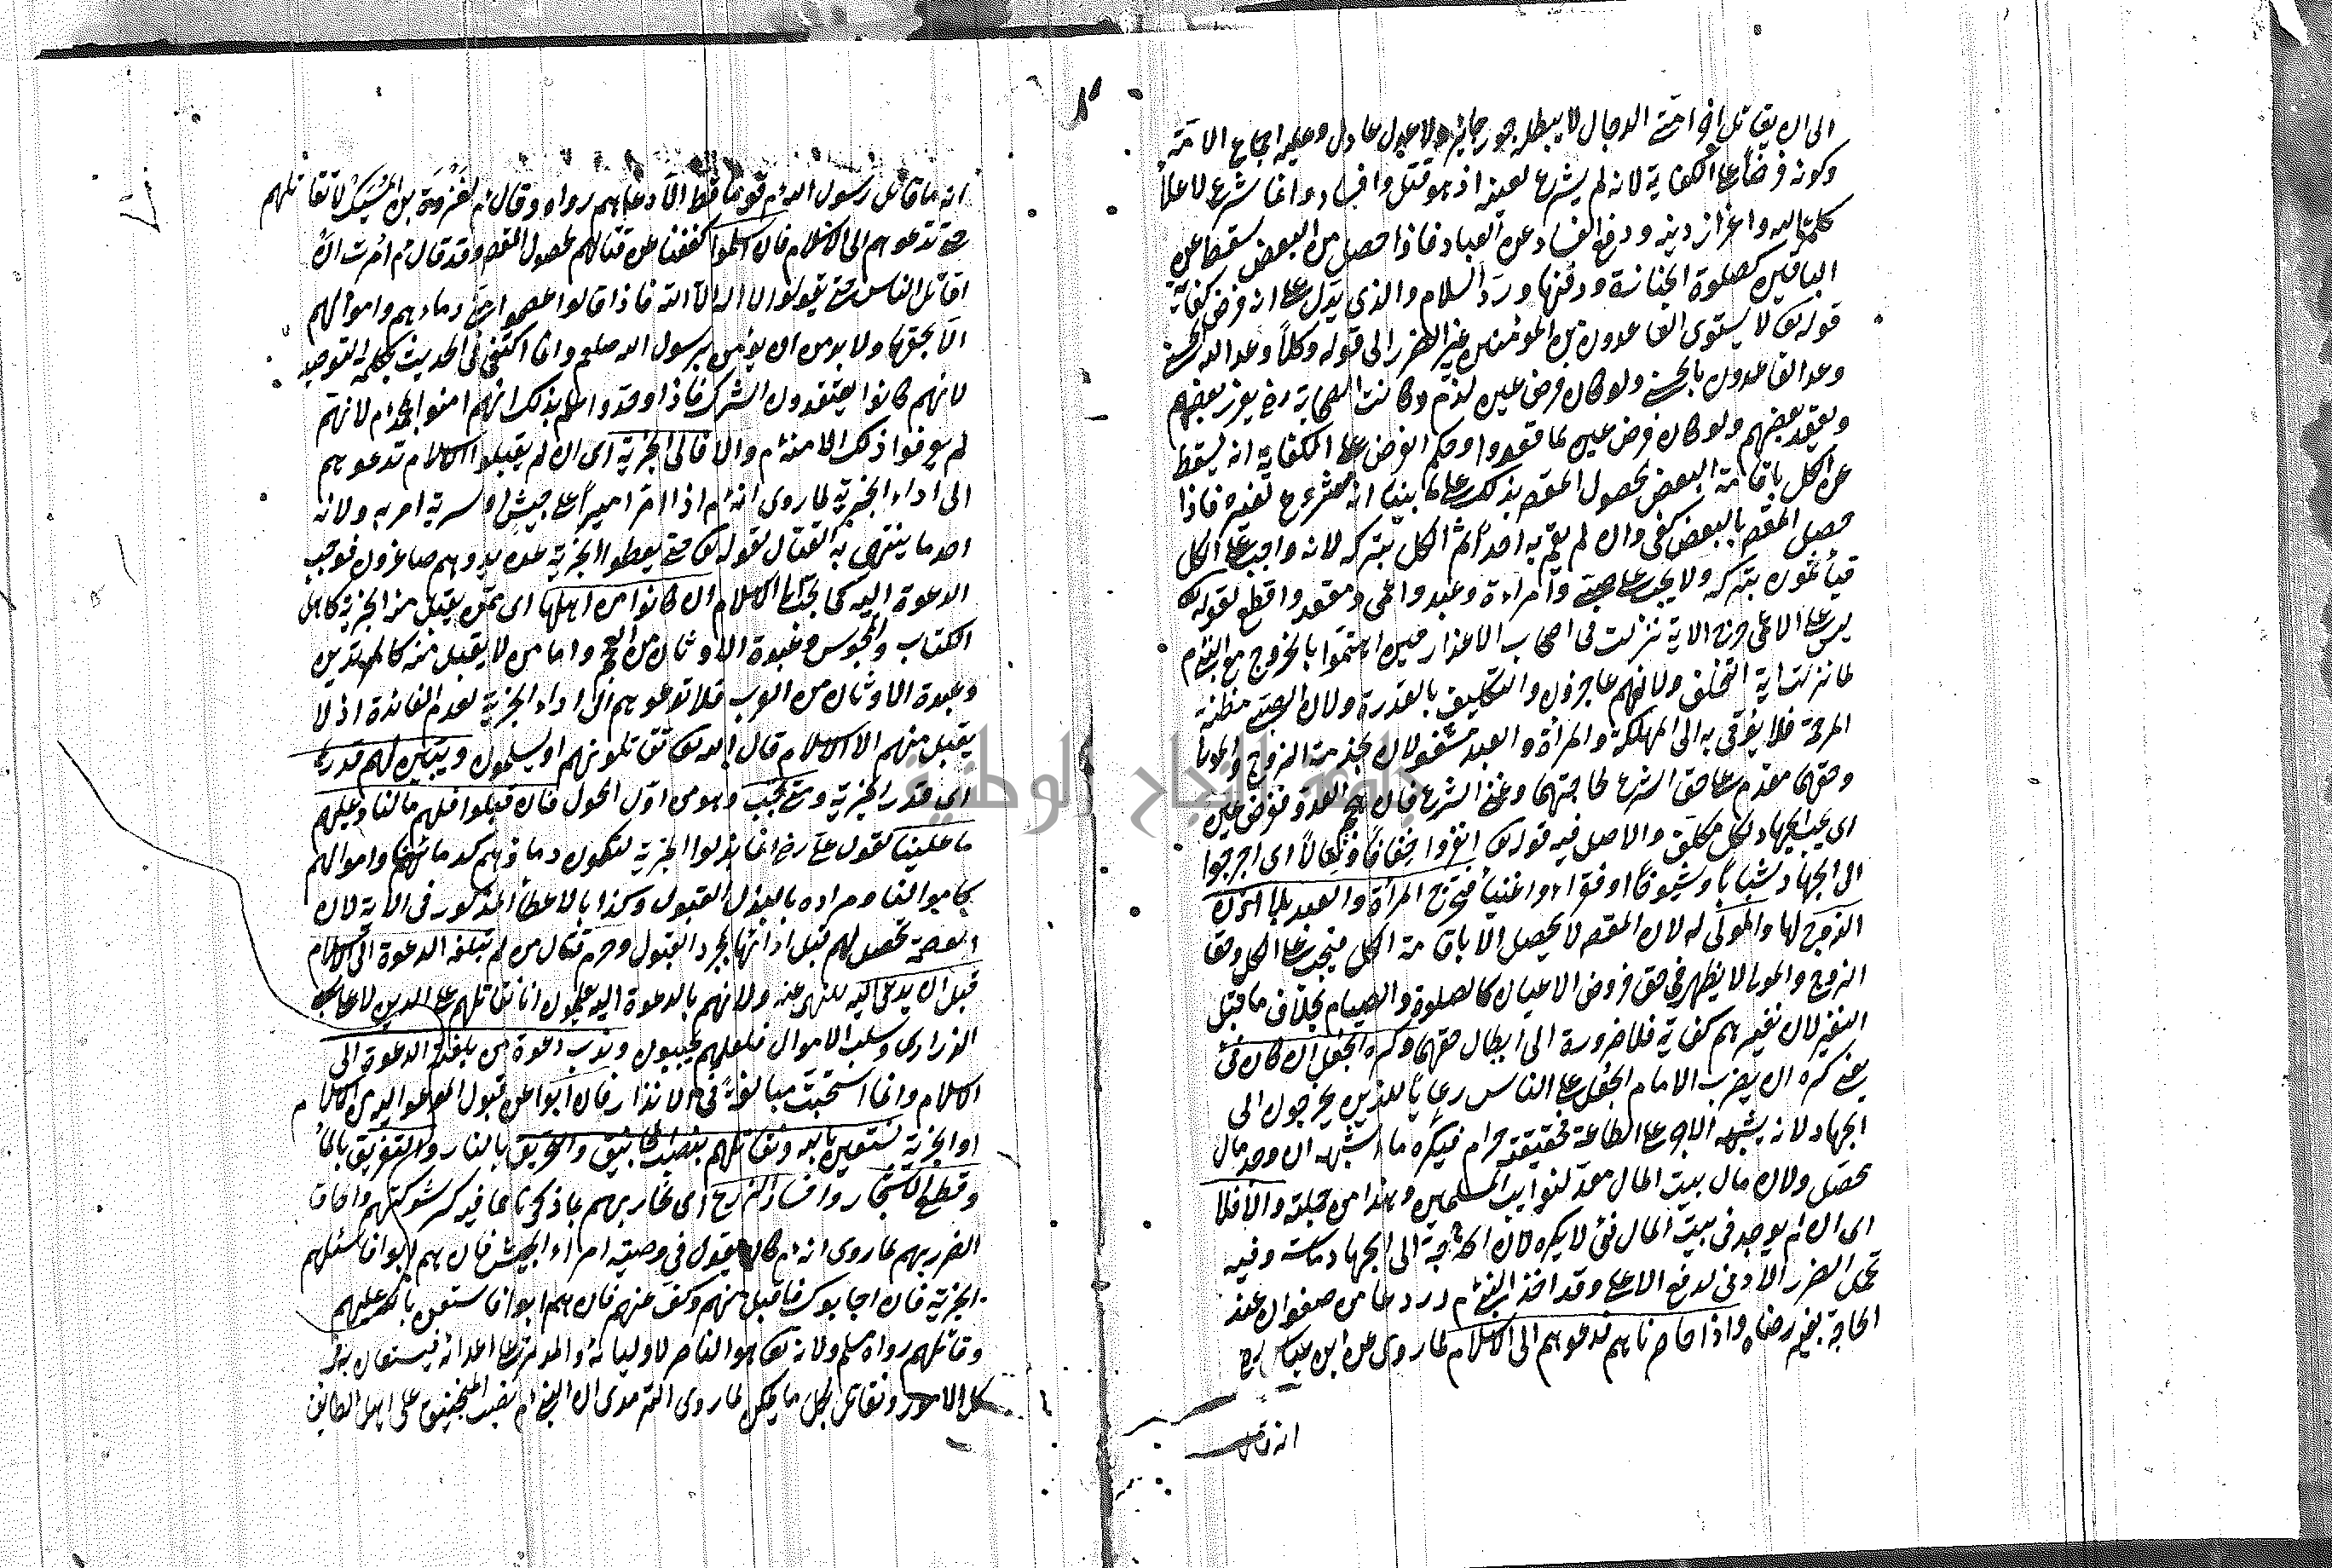 الى ان يقاتل آخر امتى الدجال لا يبطله جور جائر ولا عدل عادل وعليه اجماع الامة
وكونه فرضا على الكفاية لانه لم يشرع لعينه اذ هو قتل وافساد وانما شرع لاعلاء
كلمة الله واعزاز دينه ودفع الفساد عن العباد فاذا حصل من البعض سقط عن
الباقين كصلوة الجنازة ودفنها ورد السلام والذي يدل على انه فرض كفاية
قوله تع لا يستوى القاعدون من المؤمنين غير اولى الضرر الى قوله وكلا وعد الله الحسنى
وعد القاعدون بالحسنى ولو كان فرض عين لذم وكانت الصحابة رض يغزو بعضهم
ويقعد بعضهم ولو كان فرض عين لما قعدوا وحكم الفرض على الكفاية انه يسقط
عن الكل باقامة البعض لحصول المقص بذلك على ما بينا انه مشروع لغيره فاذا
حصل المقص بالبعض كفى وان لم يقم به احد اثم الكل بتركه لانه واجب على الكل
فيأثمون بتركه ولا يجب على صبى وامراءة وعبد واعمى ومقعد واقطع لقوله تع
ليس على الاعمى حرج الاية نزلت فى اصحاب الاعذار حين اهتموا بالخروج مع النبى ءم
لما نزلت اية التخلف ولانهم عاجزون والتكليف بالقدرة ولان الصبى مظنة
المرحمة فلا يوقع به الى المهلكة والمرأة والعبد مشغولان بخدمة الزوج والمولى
وحقهما مقدم على حق الشرع لحاجتهما وغنى الشرع فان هجم العدو ففرض عين
اى يجب الجهاد لكل مكلف والاصل فيه قوله تع انفروا خفافا وثقالا اى اخرجوا
الى الجهاد شبابا وشيوخا وفقراء واغنياء فتخرج المرأة والعبد بلا اذن
الزوج لها والمولى له لان المقص لا يحصل الا باقامة الكل فيجب على الكل وحق
الزوج والمولى لا يظهر فى حق فروض الاعيان كالصلوة والصيام بخلاف ما قبل
النفير لان بغيرهم كفاية فلا ضرورة الى ابطال حقهما وكره الجعل ان كان فئ
يعنى كره ان يضرب الامام الجعل على الناس للذين يخرجون الى
الجهاد لانه يشبه الاجر على الطاعة فحقيقته حرام فيكره ما اشبهه ان وجد مال
تحصل ولان مال بيت المال معد لنوائب المسلمين وهذا من جملته والا فلا
اى ان لم يوجد فى بيت المال فئ لا يكره لان الحاجة الى الجهاد ماسة وفيه
تحمل الضرر الادنى لدفع الاعلى وقد اخذ النبى ءم دردعا من صفوان عند
الحاجة بغير رضاه واذا حاصرناهم ندعوهم الى الاسلام لما روى عن ابن عباس رض
انه قاتل
انه ما قاتل رسول الله ءم قوما قط الا دعاهم رواه وقال ءم لفروة بن المسيك لا تقاتلهم
حتى تدعوهم الى الاسلام فان اسلموا كففنا عن قتالهم لحصول المقص وقد قال ءم امرت ان
اقاتل الناس حتى يقولوا لا اله الا الله فاذا قالوا عصموا منى دماءهم واموالهم
الا بحقها ولا بد من ان يؤمن برسول الله صلعم وانما اكتفى فى الحديث بكلمة التوحيد
لانهم كانوا يعتقدون الشرك فاذا وحدوا علم بذلك انهم امنوا بمحمد ءم لانهم
لم يعرفوا ذلك الا منه ءم والا فالى الجزية اى ان لم يقبلوا الاسلام تدعوهم
الى اداء الجزية لما روى انه ءم اذا امر اميرا على جيش او سرية امر به ولانه
احد ما ينتهى به القتال لقوله تع حتى يعطوا الجزية عن يد وهم صاغرون فوجب
الدعوة اليه كما يجب الى الاسلام ان كانوا من اهلها اى ممن يقبل منه الجزية كاهل
الكتاب والمجوس وعبدة الاوثان من العجم واما من لا يقبل منه كالمرتدين
وعبدة الاوثان من العرب فلا تدعوهم الى اداء الجزية لعدم الفائدة اذ لا
يقبل منهم الا الاسلام قال الله تع تقاتلونهم او يسلمون ويتبين لهم قدرها
اى قدر الجزية ومتى تجب وهو من اول الحول فان قبلوا فلهم ما لنا وعليهم
ما علينا لقول على رض انما بذلوا الجزية لتكون دماؤهم كدمائنا واموالهم
كاموالنا ومراده بالبذل القبول وكذا بالاعطاء المذكور فى الاية لان
العصمة تحصل لهم قبل ادائها بمجرد القبول وحرم قتال من لم تبلغه الدعوة الى الاسلام
قبل ان يدعى اليه للنهى عنه ولانهم بالدعوة اليه يعلمون انا نقاتلهم على الدين لا على
الذرارى وسلب الاموال فلعلهم يجيبون وندب دعوة من بلغته الدعوة الى
الاسلام وانما استحبت مبالغة فى الانذار فان ابوا عن قبول المدعو اليه من الاسلام
او الجزية نستعين بالله ونقاتلهم بنصب المجانيق والتحريق بالنار والتغريق بالماء
وقطع الاشجار وافساد الزرع اى نحاربهم بما ذكرنا مما فيه كسر شوكتهم والحاق
الضرر بهم لما روى انه ءم كان يقول فى وصيته امراء الجيش فان هم ابوا فاسئلهم
الجزية فان اجابوك فاقبل منهم وكف عنهم فان هم ابوا فاستعن بالله عليهم
وقاتلهم رواه مسلم ولانه تع هو الناصر لاوليائه والمدمر على اعدائه فيستعان به فى
كل الامور ونقاتل بكل ما يمكن لما روى الترمدى ان النبى ءم نصب المنجنيق على اهل الطائف
جامعة النجاح الوطنية